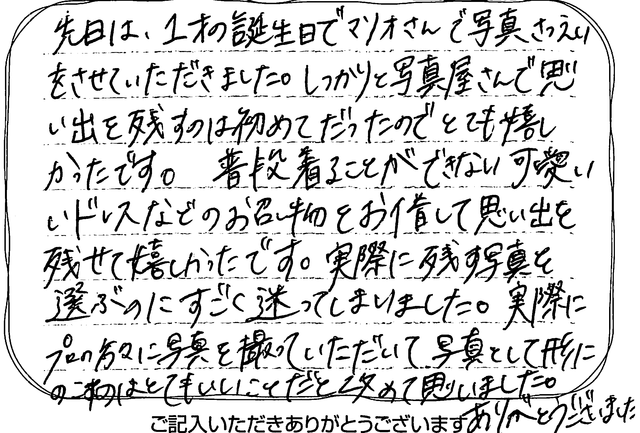 先日は、1才の誕生日でマリオさんで写真さつえい
をさせていただきました。しっかりと写真屋さんで思
い出を残すのは初めてだったのでとても嬉し
かったです。 普段着ることができない可愛い
いドレスなどのお召し物をお借して思い出を
残せて嬉しかったです。実際に残す写真を
選ぶのにすごく迷ってしまいました。実際に
プロの方々に写真を撮っていただいて写真として形に
のこるのはとてもいいことだと改めて思いました。
ご記入いただきありがとうございます ありがとうございました